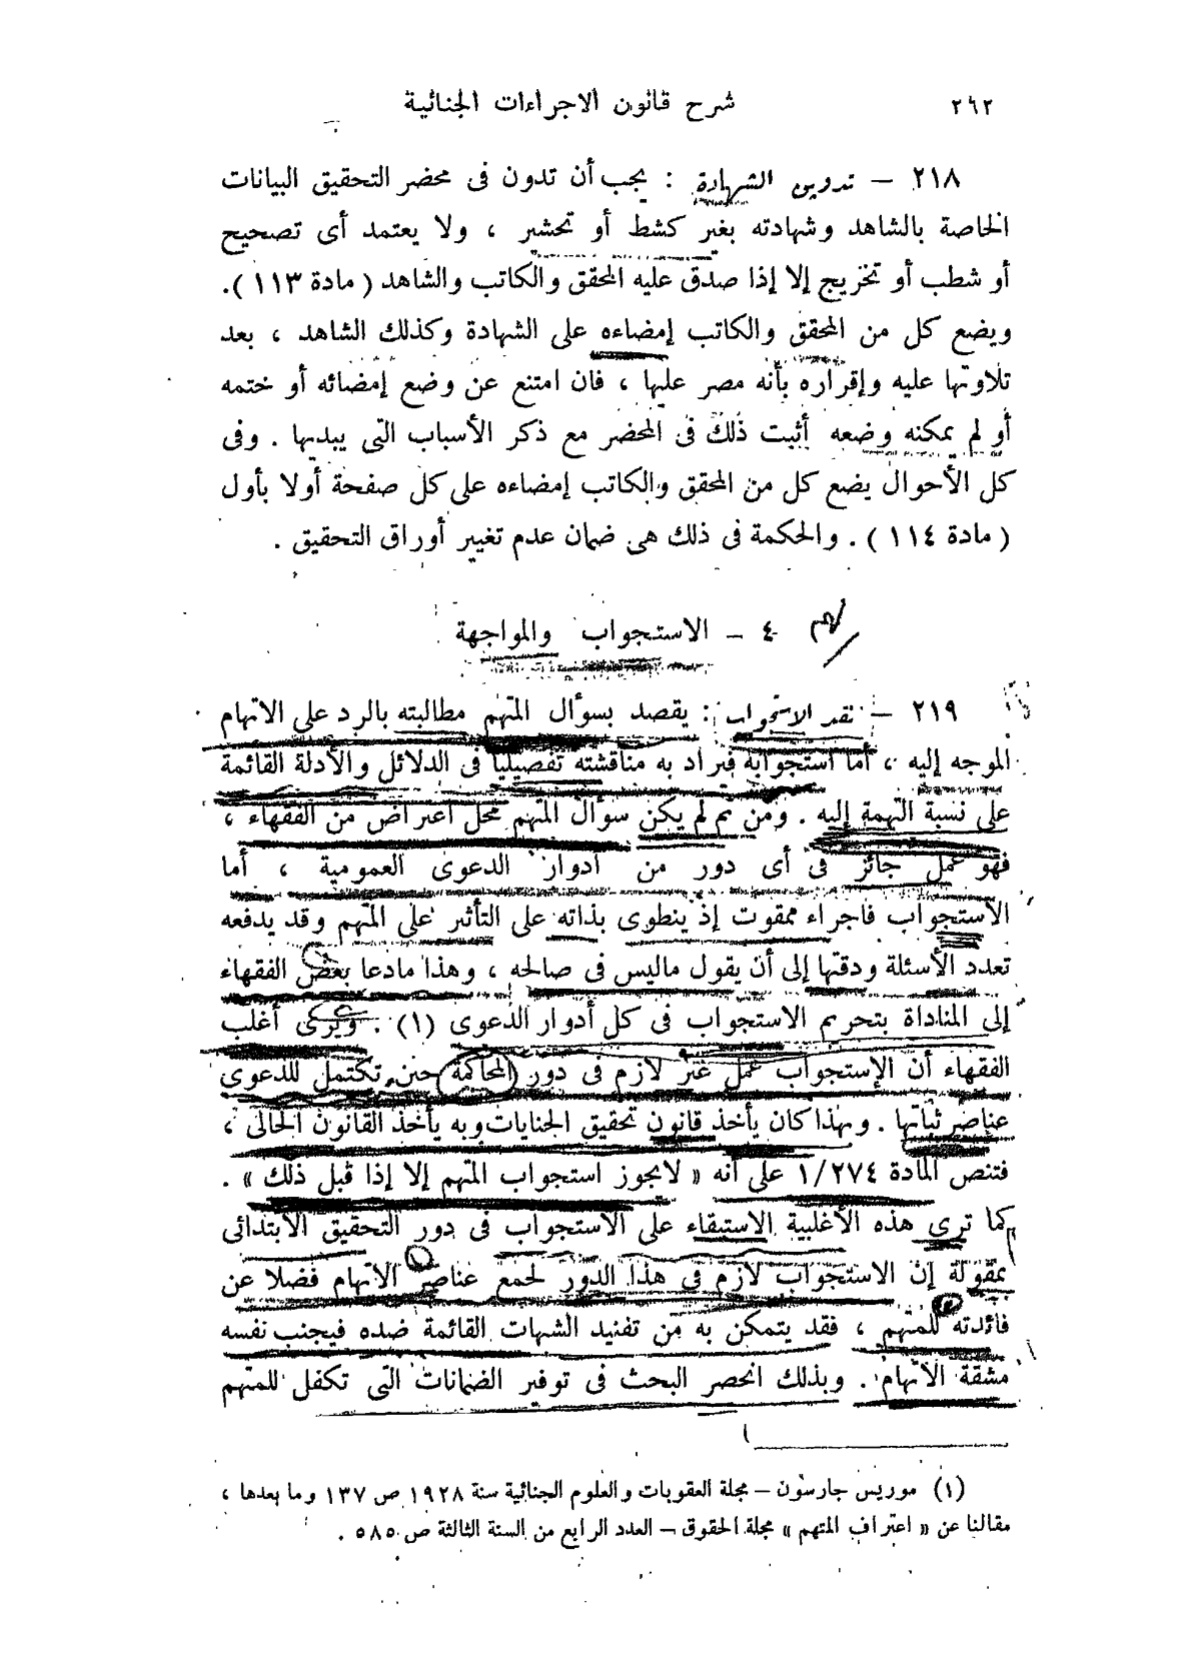 ٢٦٢ شرح قانون الاجراءات الجنائية
٢١٨ — تدوين الشهادة : يجب أن تدون فى محضر التحقيق البيانات
الخاصة بالشاهد وشهادته بغير كشط أو تحشير ، ولا يعتمد أى تصحيح
أو شطب أو تخريج إلا إذا صدق عليه المحقق والكاتب والشاهد ( مادة ١١٣ ).
ويضع كل من المحقق والكاتب إمضاءه على الشهادة وكذلك الشاهد ، بعد
تلاوتها عليه وإقراره بأنه مصر عليها ، فان امتنع عن وضع إمضائه أو ختمه
أو لم يمكنه وضعه أثبت ذلك فى المحضر مع ذكر الأسباب التى يبديها . وفى
كل الأحوال يضع كل من المحقق والكاتب إمضاءه على كل صفحة أولا بأول
( مادة ١١٤ ) . والحكمة فى ذلك هى ضمان عدم تغيير أوراق التحقيق .
٤ – الاستجواب والمواجهة
٢١٩ — نقد الاستجواب : يقصد بسؤال المتهم مطالبته بالرد على الاتهام
الموجه إليه ، أما استجوابه فيراد به مناقشته تفصيليا فى الدلائل والأدلة القائمة
على نسبة التهمة إليه . ومن ثم لم يكن سؤال المتهم محل اعتراض من الفقهاء ،
فهو عمل جائز فى أى دور من أدوار الدعوى العمومية ، أما
الاستجواب فاجراء ممقوت إذ ينطوى بذاته على التأثير على المتهم وقد يدفعه
تعدد الأسئلة ودقتها إلى أن يقول ماليس فى صالحه ، وهذا مادعا بعض الفقهاء
إلى المناداة بتحريم الاستجواب فى كل أدوار الدعوى (١) . ويرى أغلب
الفقهاء أن الإستجواب عمل غير لازم فى دور المحاكمة حين تكتمل للدعوى
عناصر ثباتها . وبهذا كان يأخذ قانون تحقيق الجنايات وبه يأخذ القانون الحالى ،
فتنص المادة ١/٢٧٤ على أنه « لايجوز استجواب المتهم إلا إذا قبل ذلك » .
كما ترى هذه الأغلبية الاستبقاء على الاستجواب فى دور التحقيق الابتدائى
بمقولة إن الاستجواب لازم فى هذا الدور لجمع عناصر الاتهام فضلا عن
فائدته للمتهم ، فقد يتمكن به من تفنيد الشبهات القائمة ضده فيجنب نفسه
مشقة الاتهام . وبذلك انحصر البحث فى توفير الضمانات التى تكفل للمتهم
(١) موريس جارسون — مجلة العقوبات والعلوم الجنائية سنة ١٩٢٨ ص ١٣٧ وما بعدها ،
مقالنا عن « اعتراف المتهم » مجلة الحقوق — العدد الرابع من السنة الثالثة ص ٥٨٥ .